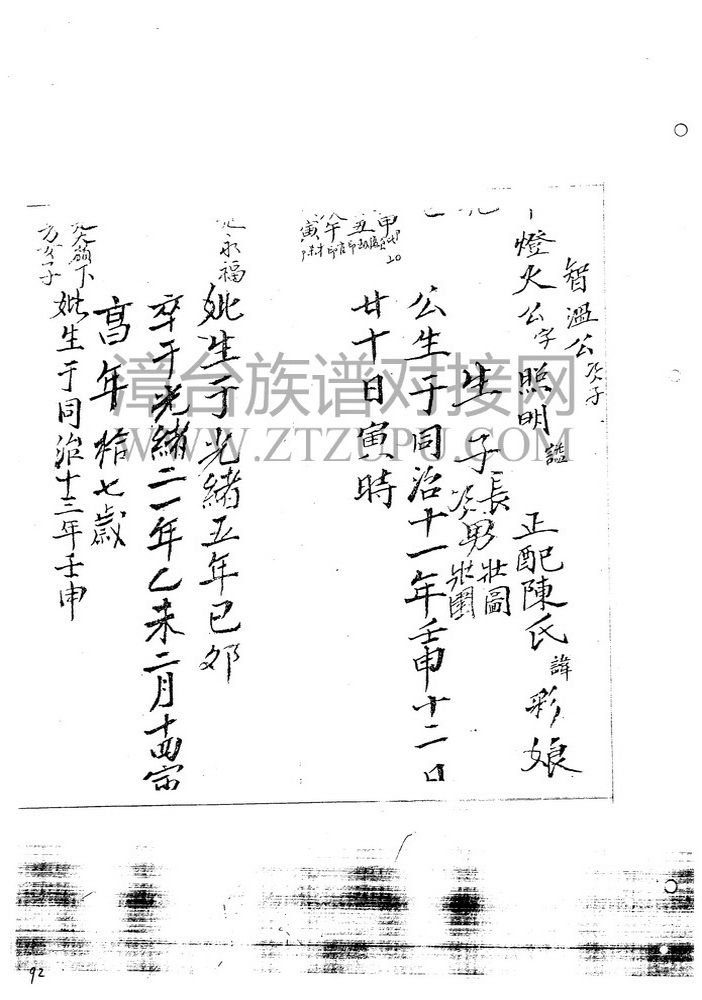 智溫公次子
燈火公字照明謚
正配陳氏諱彩娘
生子長男壯圖
次壯圍
公生于同治十一年壬申十二日
廿十日寅時
甲
丑
午
寅
永福
妣生于光緒五年已夘
卒于光緒二一年乙未二月十四
高年拾七歲
妣生于同治十三年壬申
漳台族谱对接网
WWW.ZTZUPU.COM
92